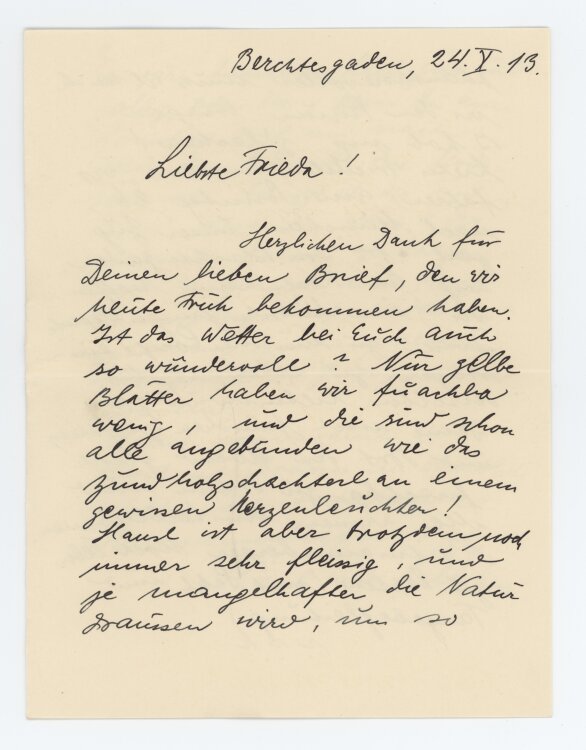 Berchtesgaden, 24. X. 13.
Liebste Frieda !
Herzlichen Dank für
Deinen lieben Brief, den wir
heute Früh bekommen haben.
Ist das Wetter bei Euch auch
so wundervoll ? Nur gelbe
Blätter haben wir furchtba
wenig, und die sind schon
alle angebunden wie das
Zündholzschachterl an einem
gewissen Kerzenleuchter !
Hansl ist aber trotzdem noch
immer sehr fleissig, und
je mangelhafter die Natur
draussen wird, um so